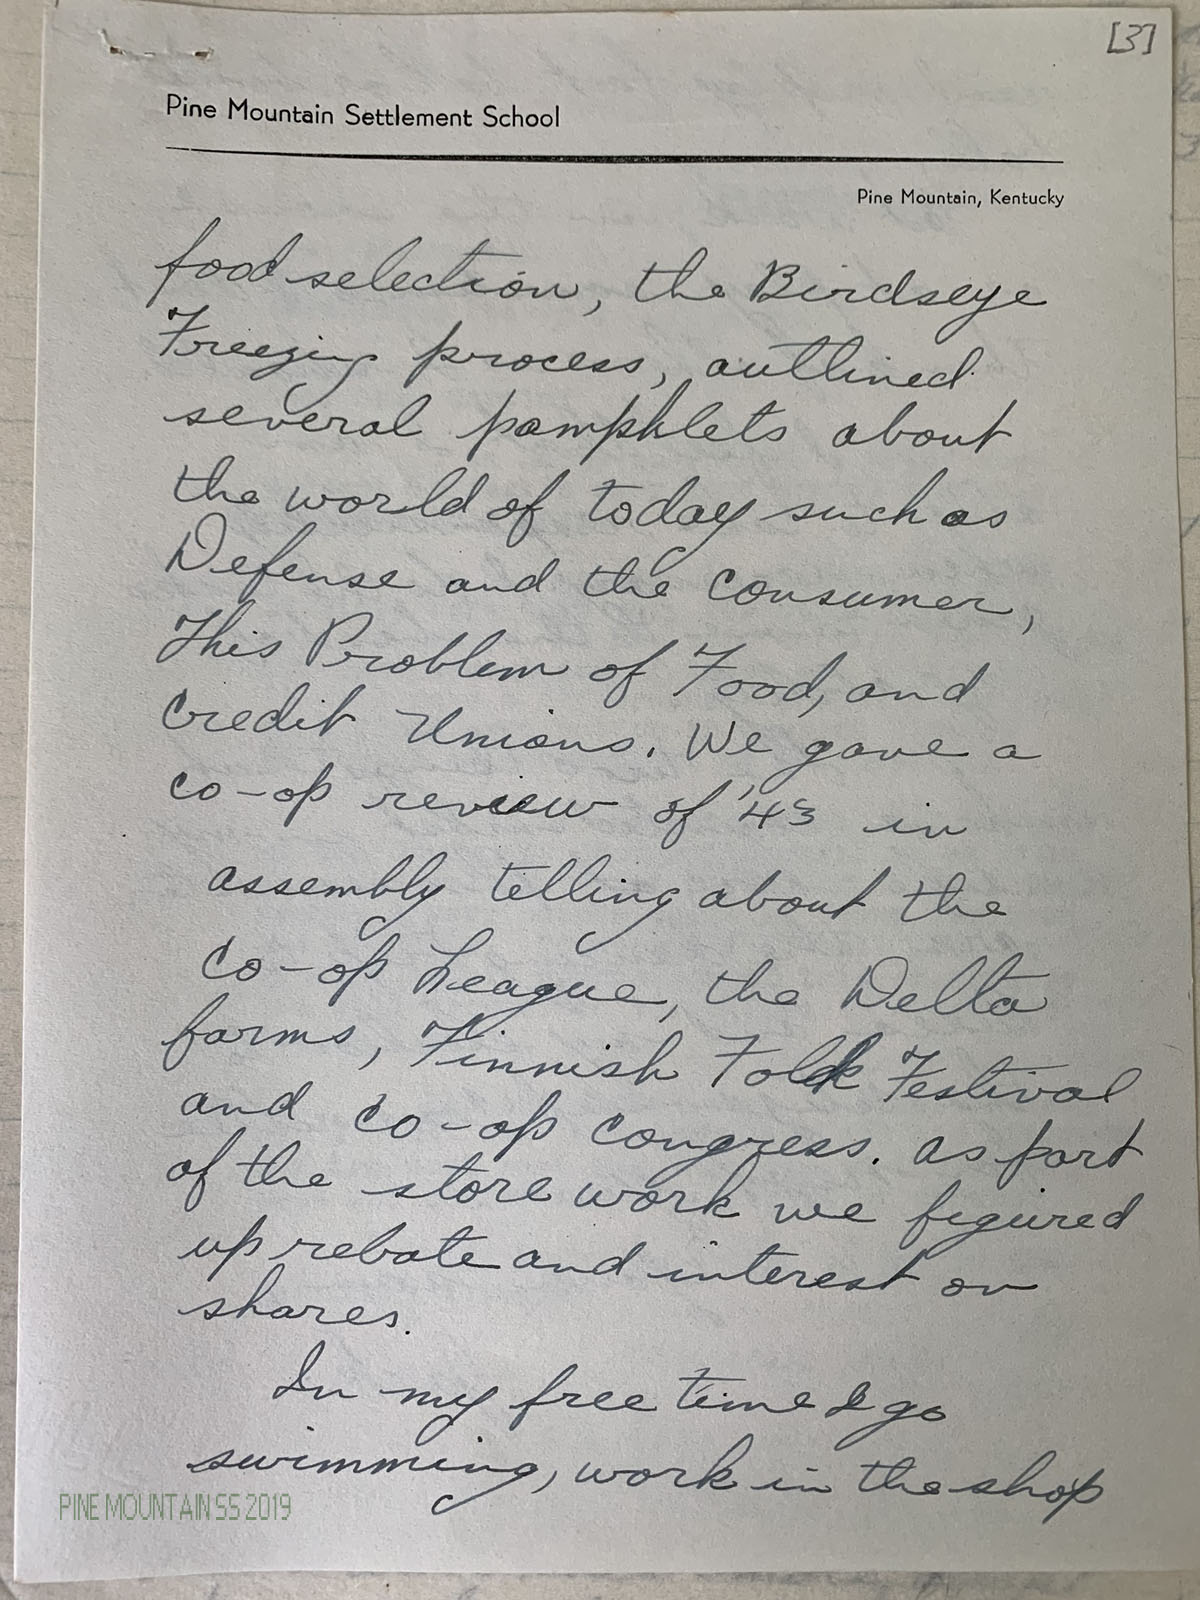 [3]
Pine Mountain Settlement School
Pine Mountain, Kentucky
food selection, the Birdseye
Freezing process, outlined
several pamphlets about
the world of today such as
Defense and the consumer,
This Problem of Food, and
Credit Unions. We gave a
co-op review of '43 in
assembly telling about the
Co-op League, the Delta
farms, Finnish Folk Festival
and co-op congress. As part
of the store work we figured
up rebate and interest on
shares.
In my free time I go
swimming, work in the shop
PINE MOUNTAIN SS 2019